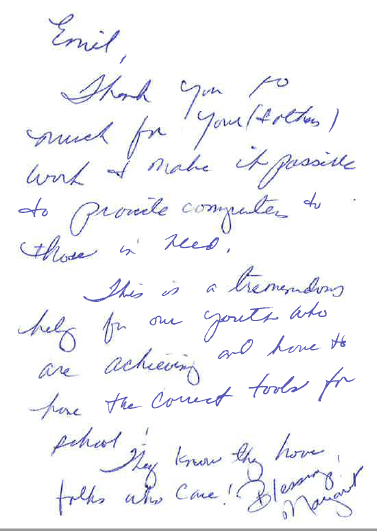 Emil,
Thank you so
much for your (& others)
work & make it possible
to provide computers to
those in need.
This is a tremendous
help for our youth who
are achieving and have to
have the correct tools for
school!
They know they have
folks who care! Blessings,
Margaret